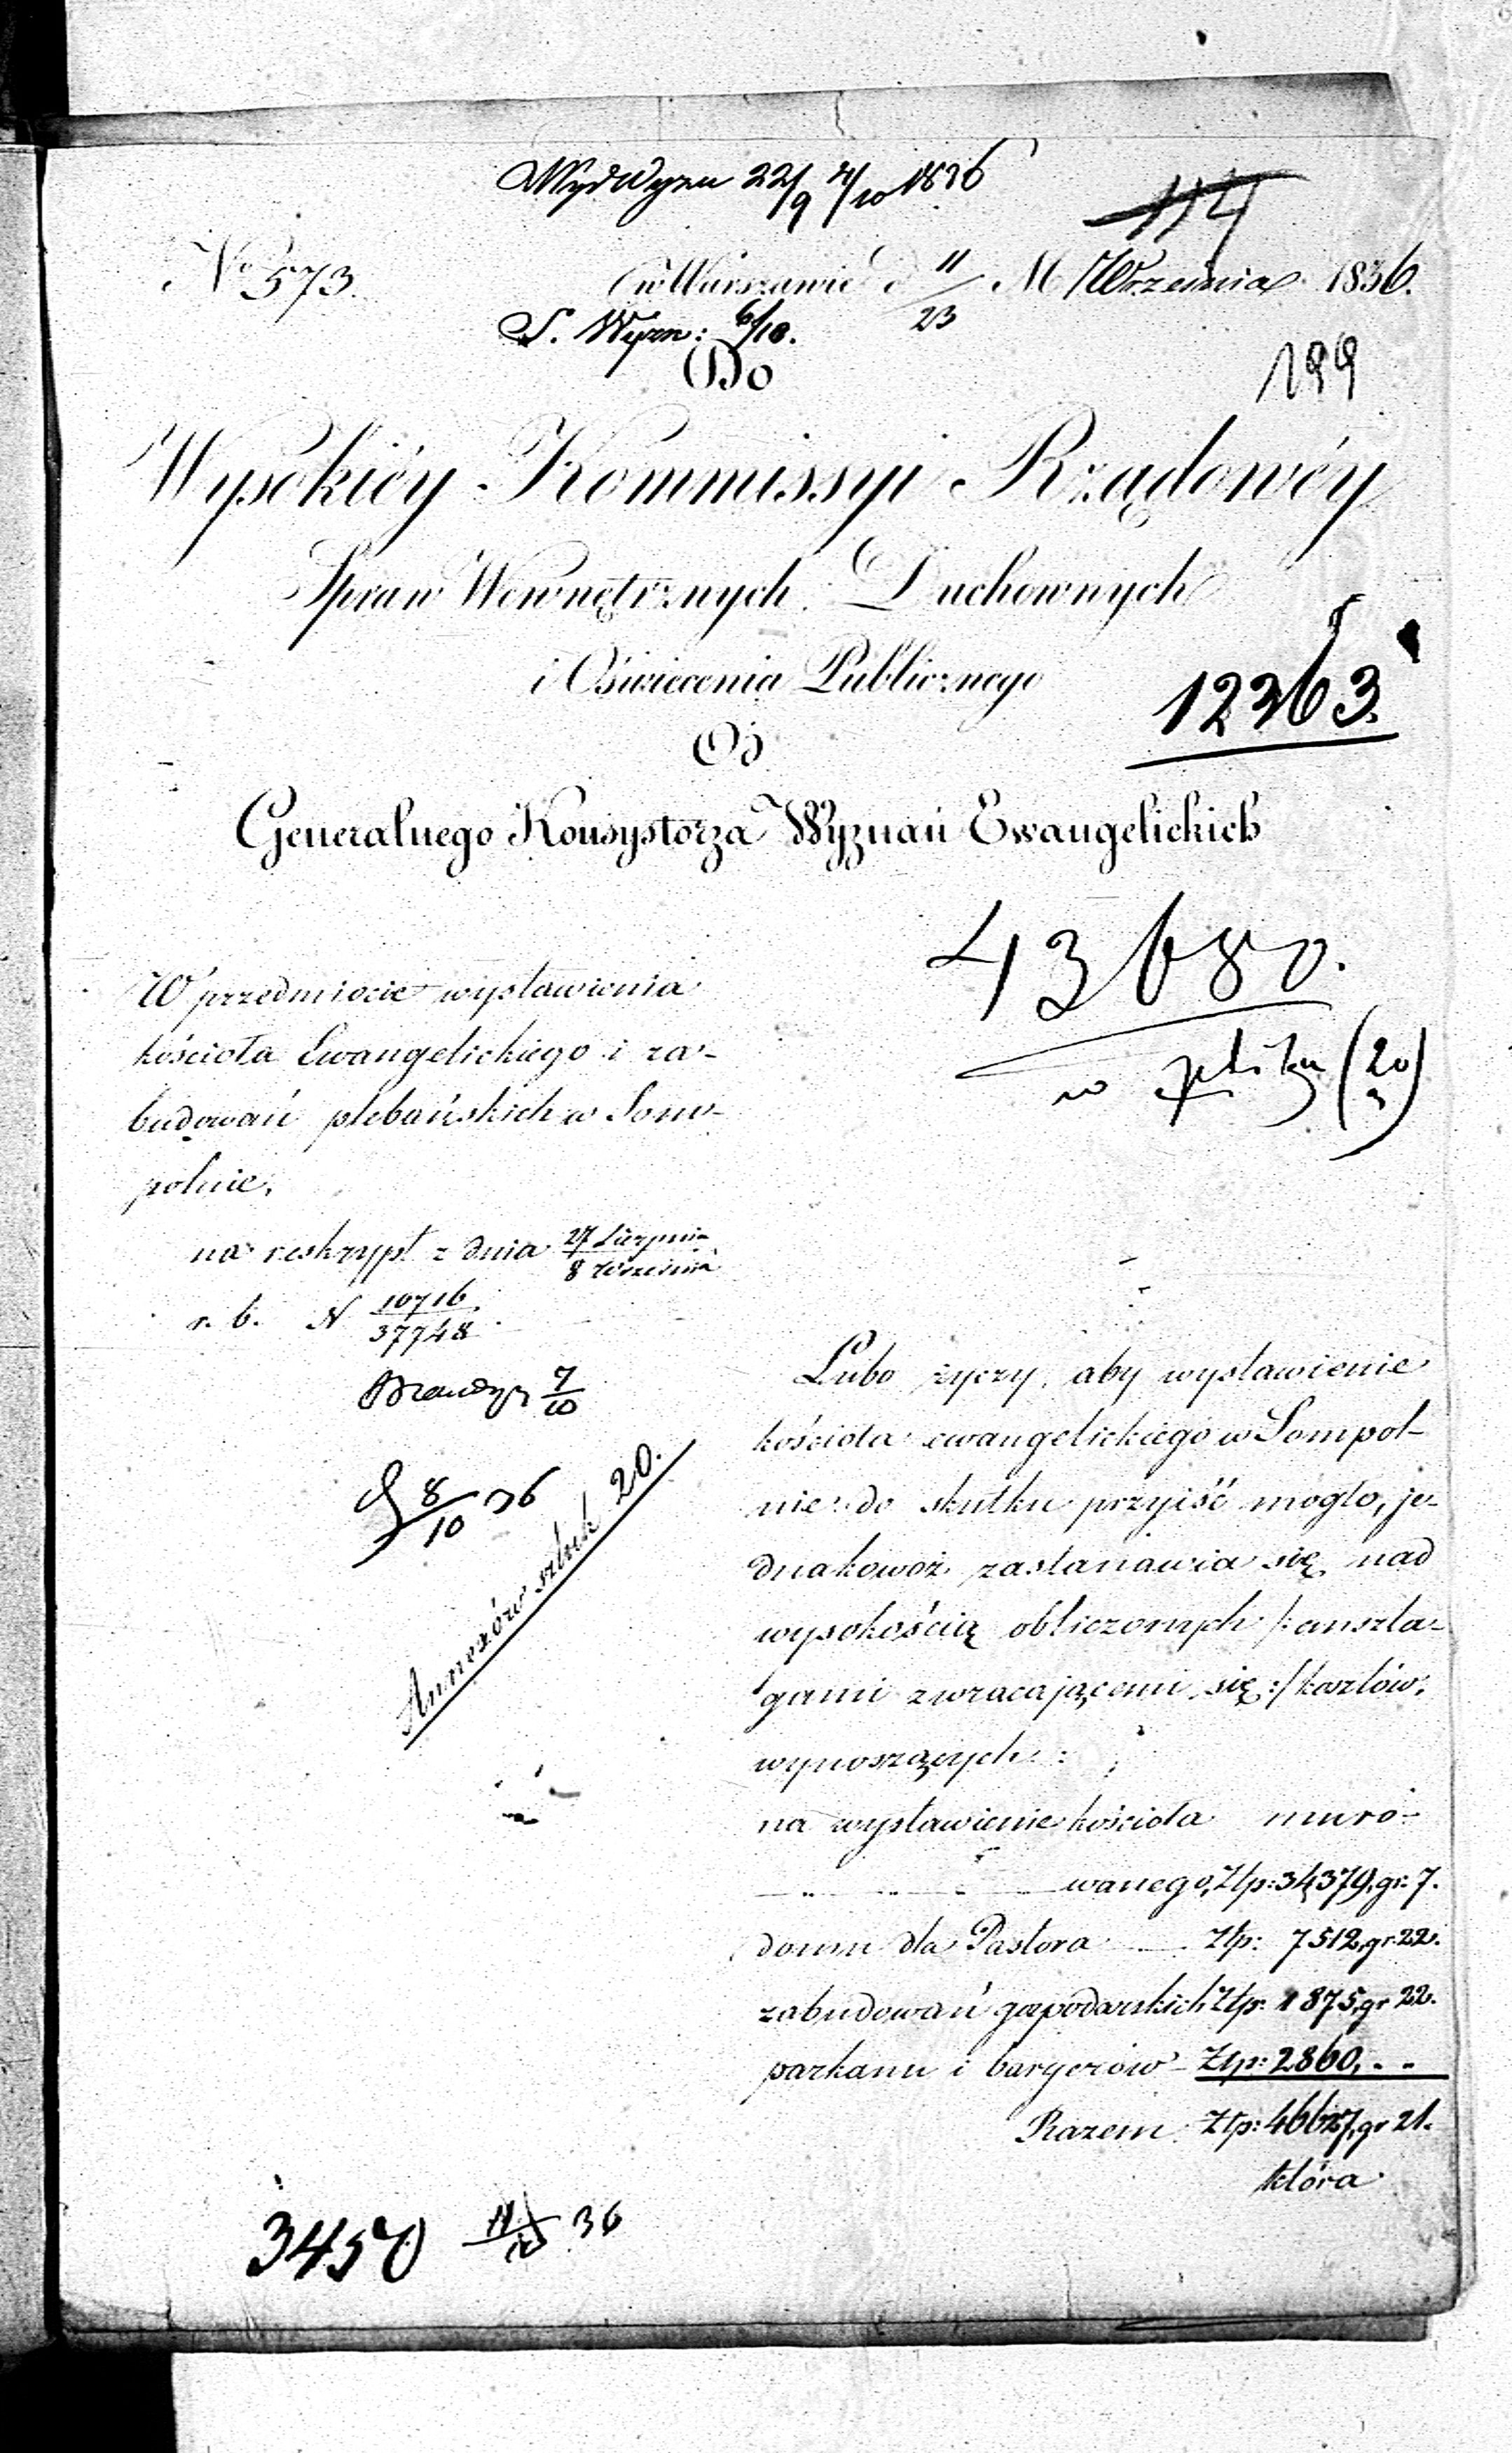 WydWyzn 22/9 4/10 1836
114
No 573.
w Warszawie d 11/23 M Września 1836.
S. Wyzn: 6/10.
Do
199
Wysokiéy Kommissyi Rządowéy
Spraw Wewnętrznych Duchownych
i Oświecenia Publicznego
12363.
Od
Generalnego Konsystorza Wyznań Ewangelickich
43680.
w (20)
W przedmiocie wystawienia
kościoła Ewangelickiego i za-
budowań plebańskich w Som-
polnie,
na reskrypt z dnia 27 Sierpnia / 8 Września
r. b. N 10716 / 37748.
7/10
8/10 36
Annexów sztuk 20.
Lubo życzy, aby wystawienie
kościoła ewangelickiego w Sompol-
nie do skutku przyjść mogło, je-
dnakowoż zastanawia się nad
wysokością obliczonych /: anszla-
gami zwracającemi się :/ kosztów,
wynoszących:
na wystawienie kościoła muro-
wanego, Złp: 34,379, gr. 7.
domu dla Pastora Złp: 7512, gr 22.
zabudowań gospodarskich Złp: 1875, gr 22.
parkanu i baryerów Złp: 2860, - -
Razem Złp: 46627, gr 21.
która
3450 36